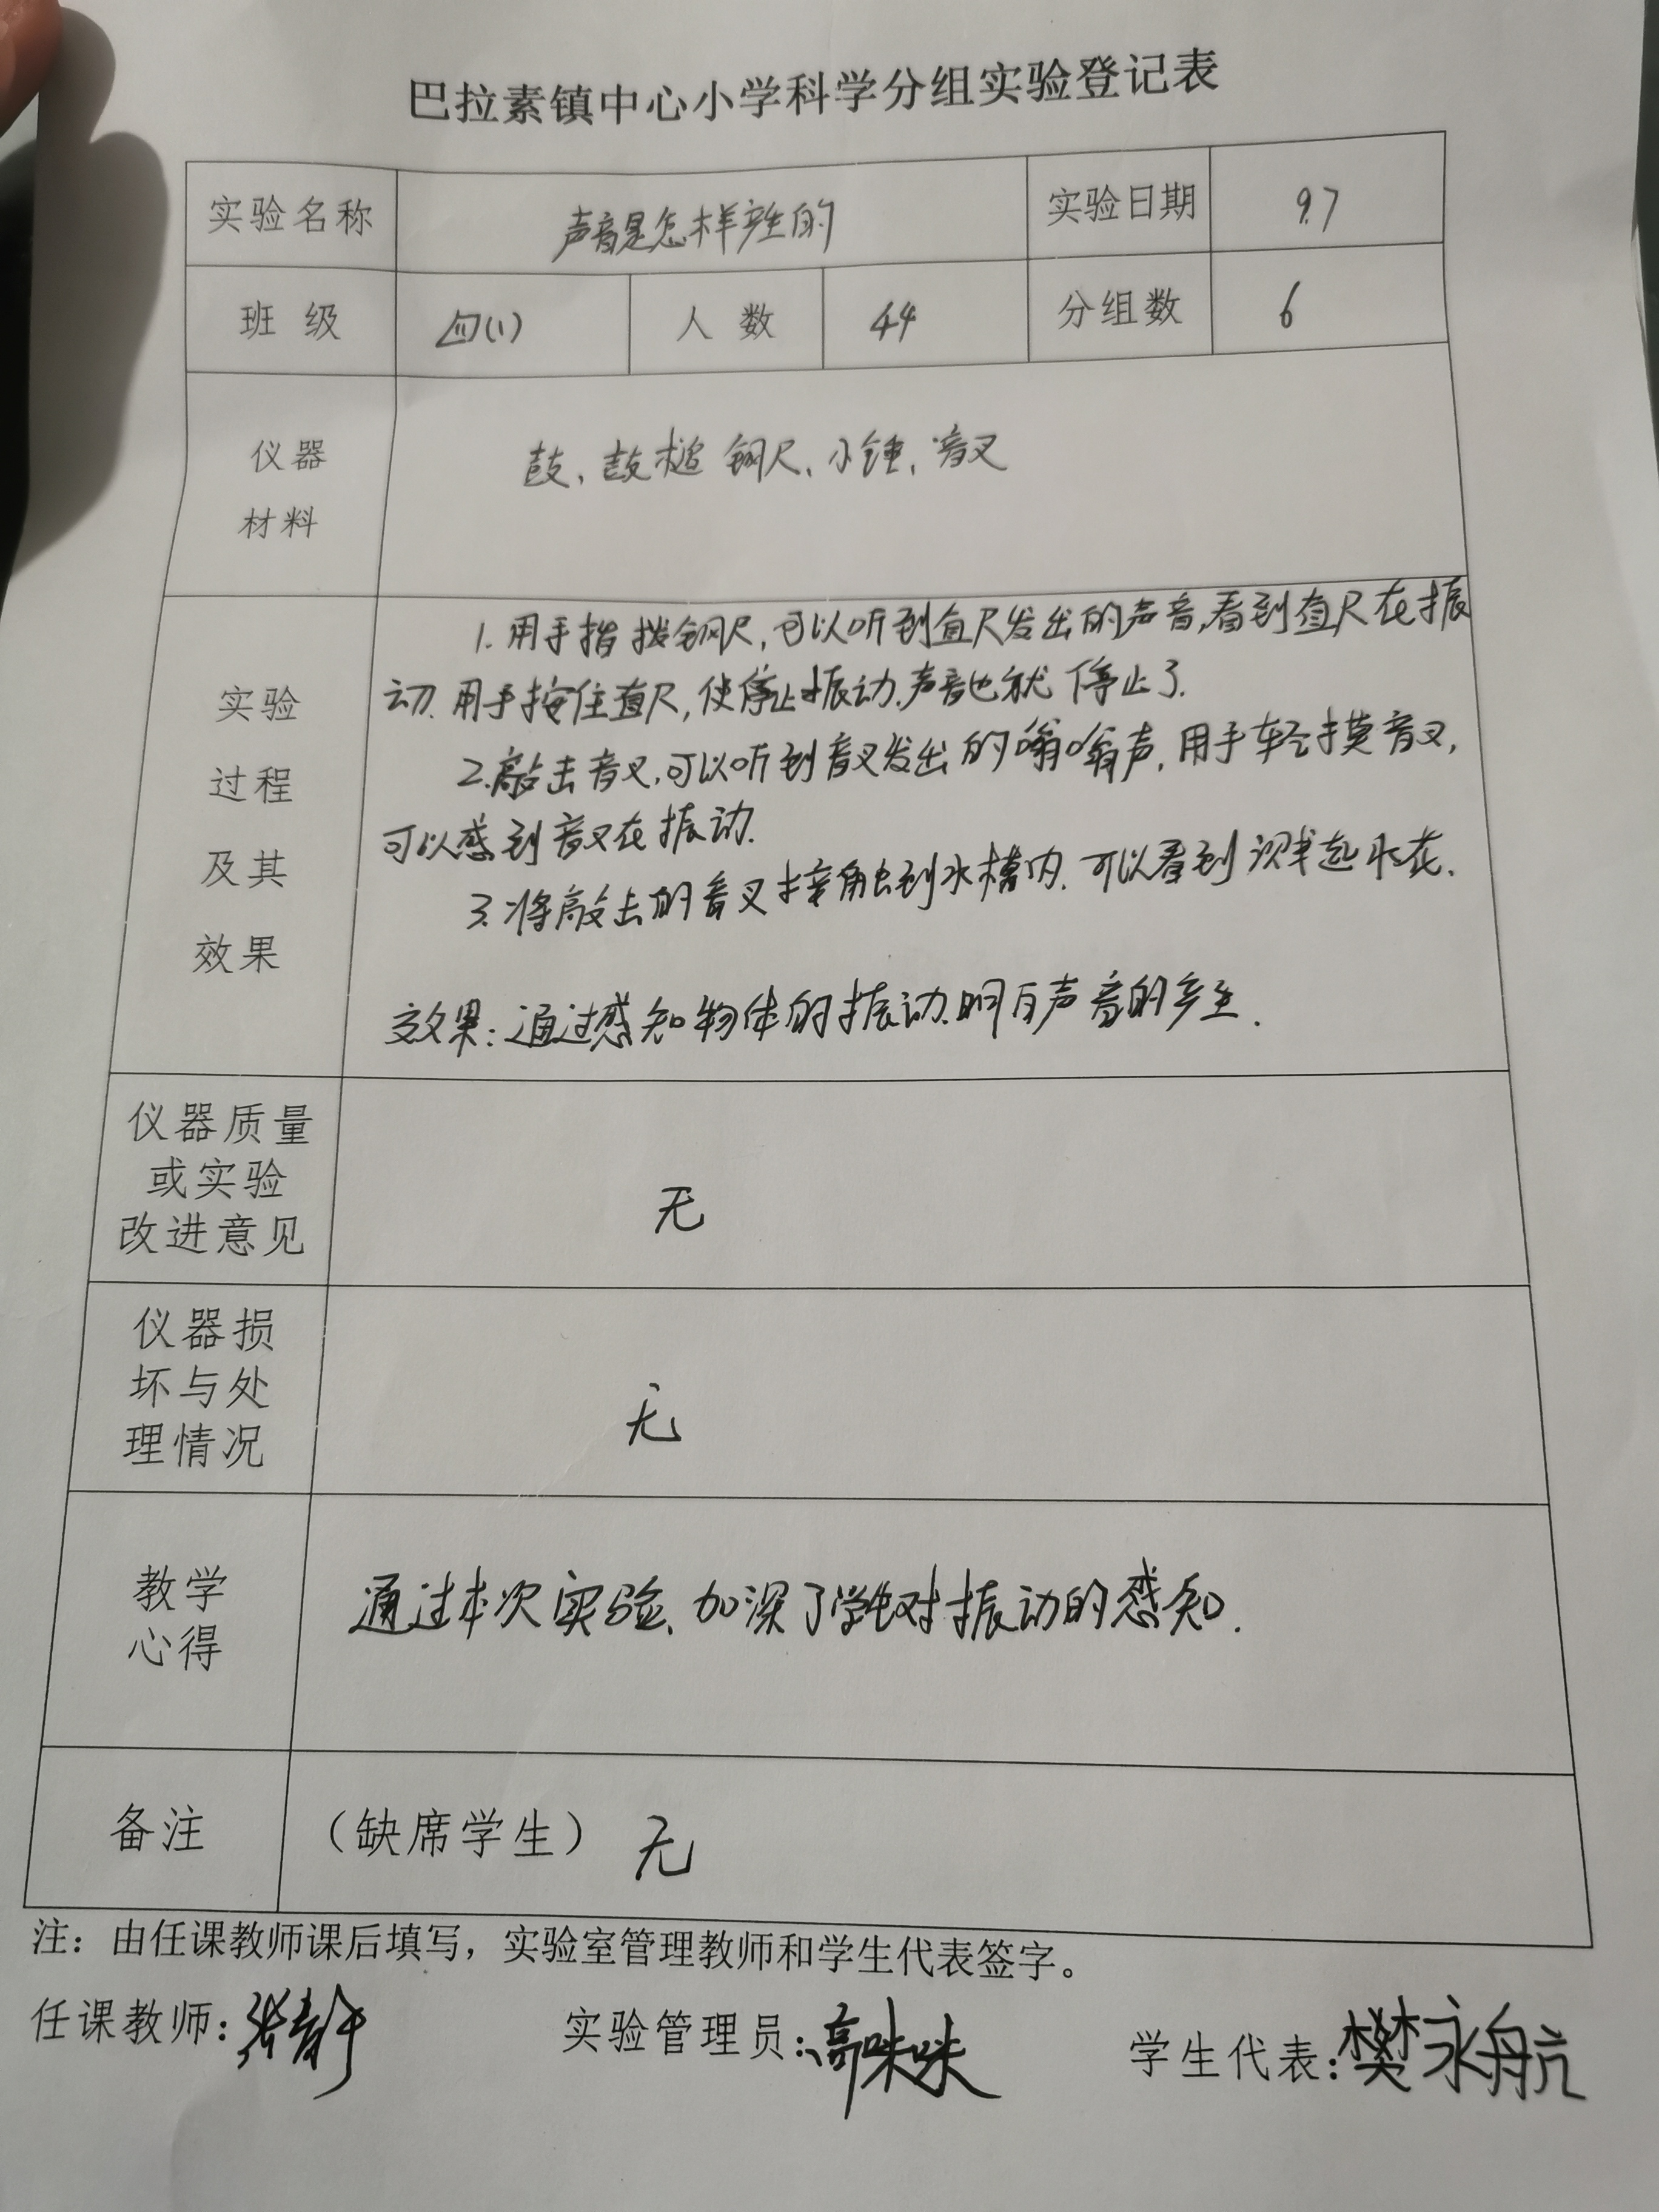 巴拉素镇中心小学科学分组实验登记表
实验名称 声音是怎样产生的 实验日期 9.7
班级 四(1) 人数 44 分组数 6
仪器
材料
鼓、鼓槌 钢尺、小锤、音叉
实验
过程
及其
效果
1.用手指拨钢尺,可以听到直尺发出的声音,看到直尺在振
动.用手按住直尺,使停止振动.声音也就停止了.
2.敲击音叉,可以听到音叉发出的嗡嗡声,用手轻摸音叉,
可以感到音叉在振动.
3.将敲击的音叉接触到水槽内.可以看到溅起水花.
效果:通过感知物体的振动.明白声音的产生.
仪器质量
或实验
改进意见
无
仪器损
坏与处
理情况
无
教学
心得
通过本次实验、加深了学生对振动的感知.
备注 (缺席学生) 无
注:由任课教师课后填写,实验室管理教师和学生代表签字。
任课教师:张静 实验管理员:高咪咪 学生代表:樊永航